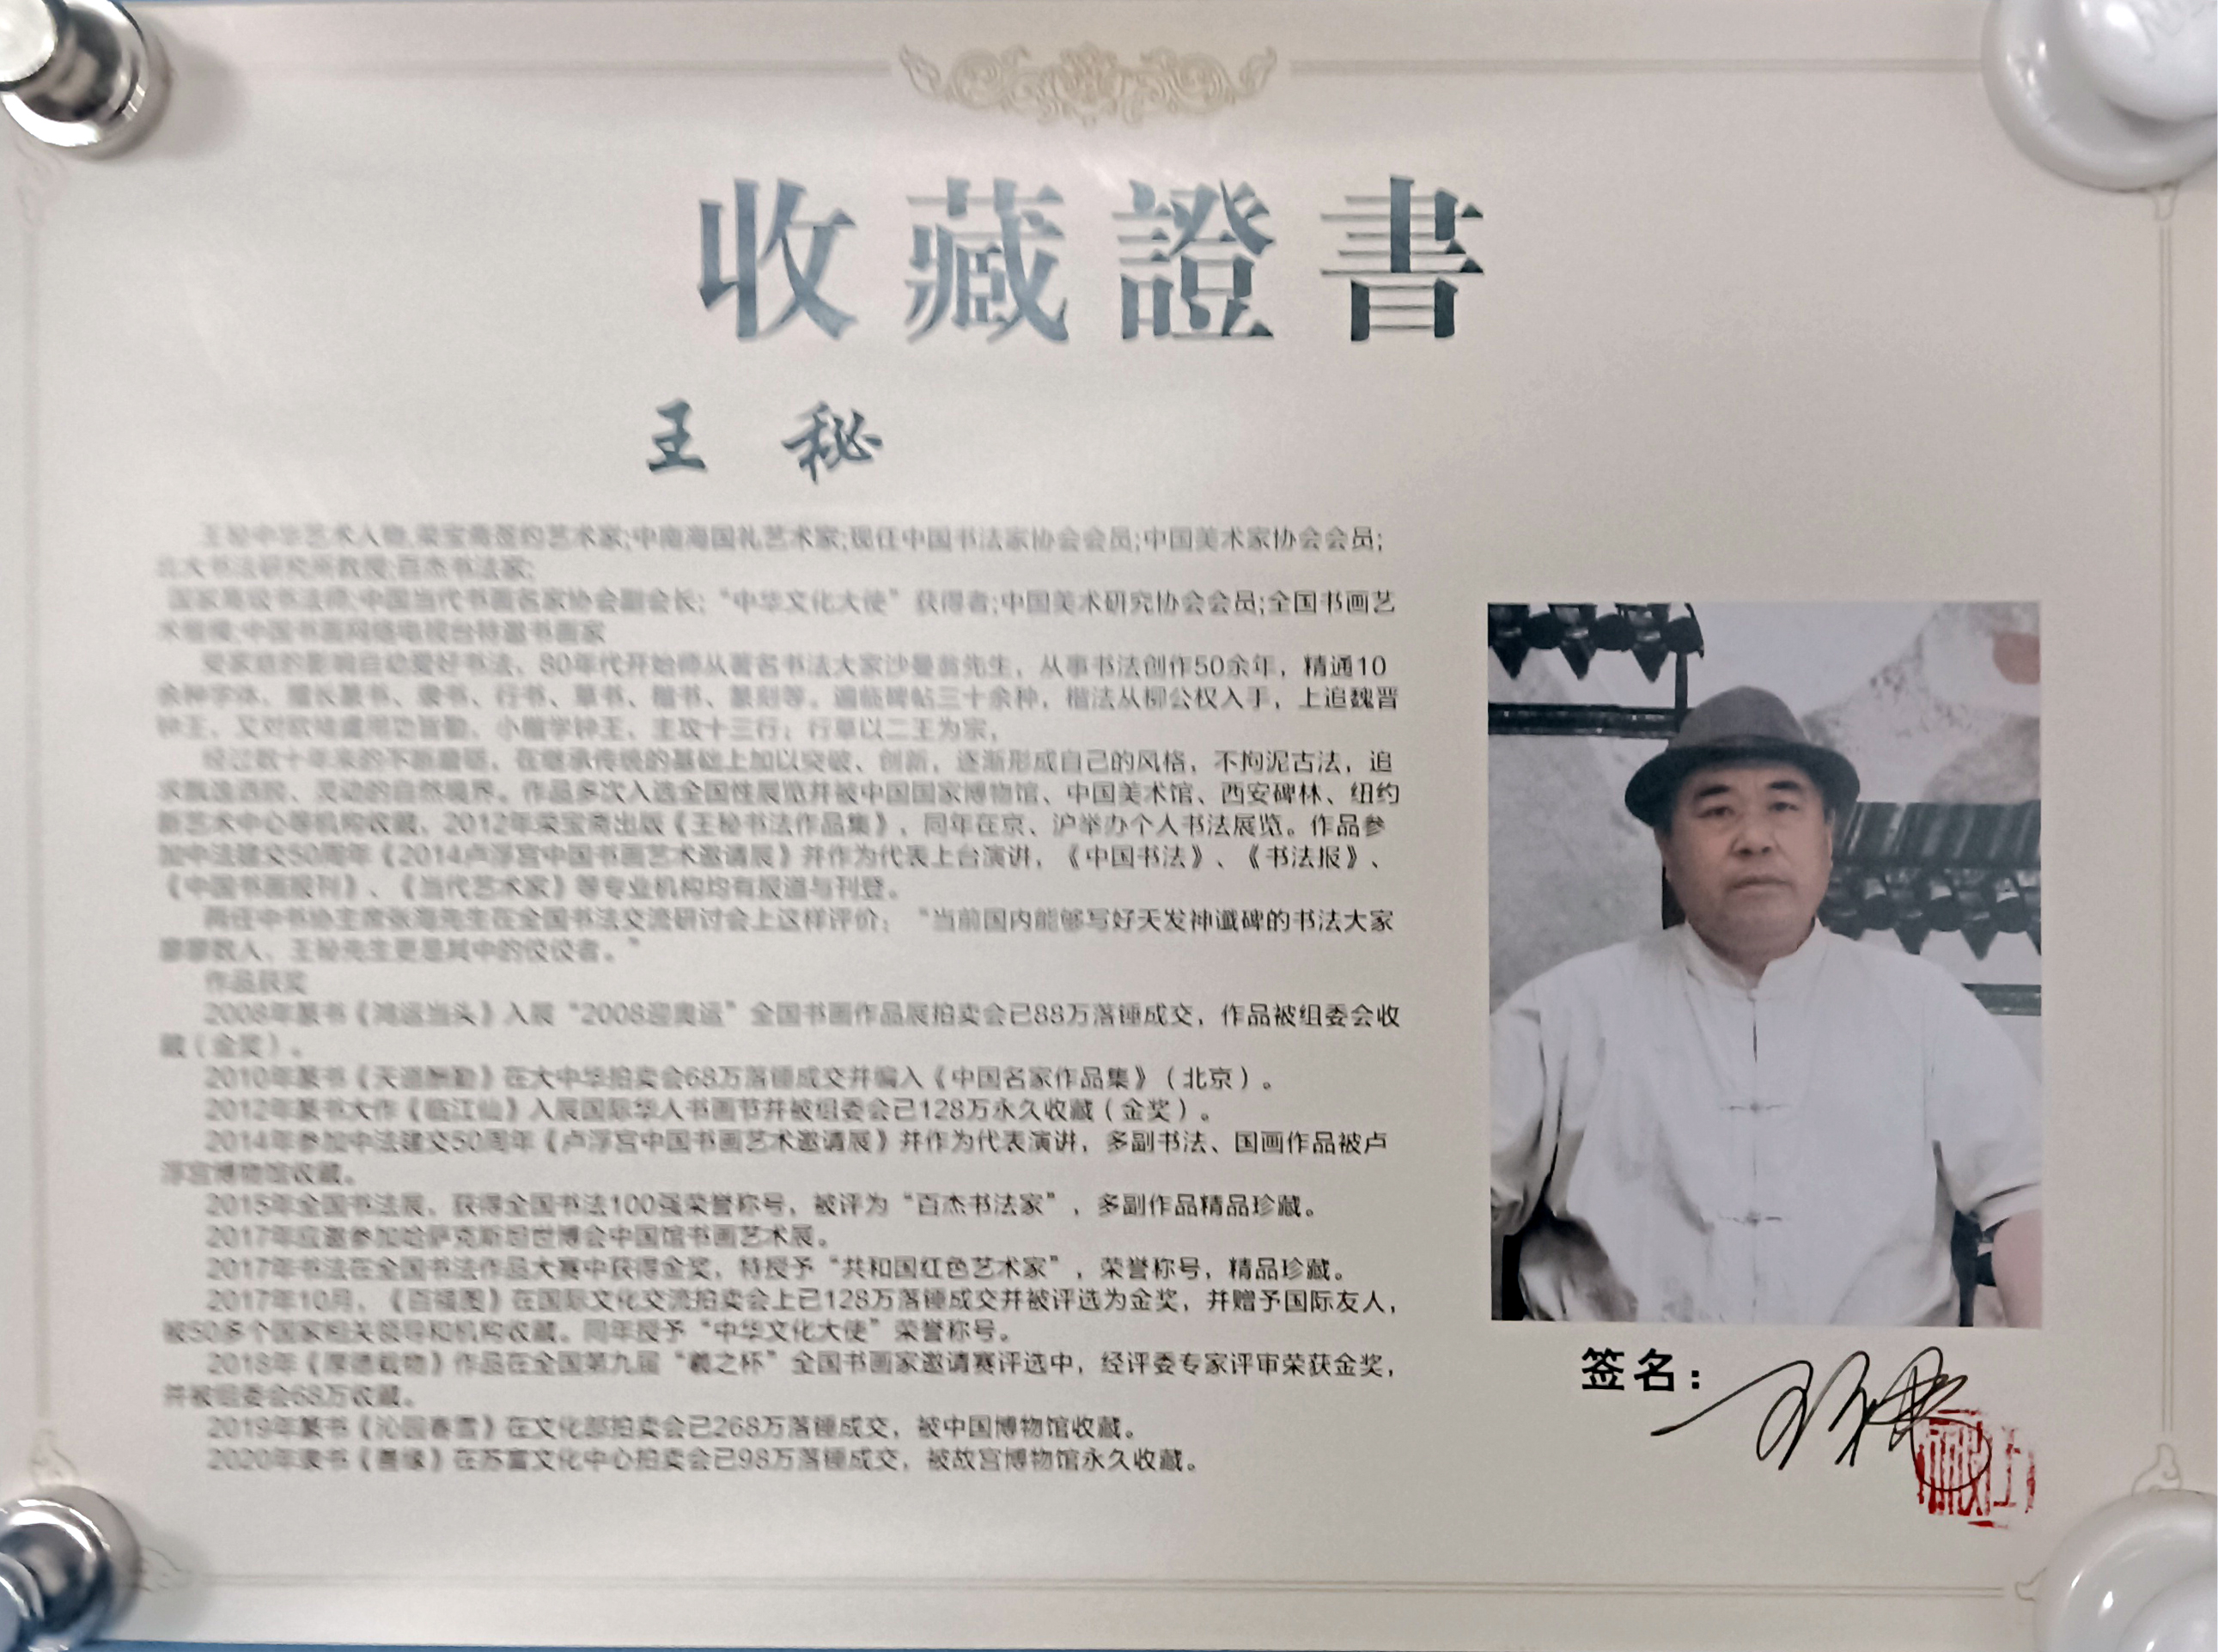 收藏證書
王 秘
王秘中华艺术人物;荣宝斋签约艺术家;中南海国礼艺术家;现任中国书法家协会会员;中国美术家协会会员;
北大书法研究所教授;百杰书法家;
国家高级书法师;中国当代书画名家协会副会长;“中华文化大使”获得者;中国美术研究协会会员;全国书画艺
术楷模;中国书画网络电视台特邀书画家
受家庭的影响自幼爱好书法，80年代开始师从著名书法大家沙曼翁先生，从事书法创作50余年，精通10
余种字体，擅长篆书、隶书、行书、草书、楷书、篆刻等。遍临碑帖三十余种，楷法从柳公权入手，上追魏晋
钟王，又对欧褚虞用功皆勤，小楷学钟王，主攻十三行；行草以二王为宗，
经过数十年来的不断磨砺，在继承传统的基础上加以突破、创新，逐渐形成自己的风格，不拘泥古法，追
求飘逸洒脱、灵动的自然境界。作品多次入选全国性展览并被中国国家博物馆、中国美术馆、西安碑林、纽约
新艺术中心等机构收藏，2012年荣宝斋出版《王秘书法作品集》，同年在京、沪举办个人书法展览。作品参
加中法建交50周年《2014卢浮宫中国书画艺术邀请展》并作为代表上台演讲，《中国书法》、《书法报》、
《中国书画报刊》、《当代艺术家》等专业机构均有报道与刊登。
两任中书协主席张海先生在全国书法交流研讨会上这样评价：“当前国内能够写好天发神谶碑的书法大家
寥寥数人，王秘先生更是其中的佼佼者。”
作品获奖
2008年篆书《鸿运当头》入展“2008迎奥运”全国书画作品展拍卖会已88万落锤成交，作品被组委会收
藏（金奖）。
2010年篆书《天道酬勤》在大中华拍卖会68万落锤成交并编入《中国名家作品集》（北京）。
2012年篆书大作《临江仙》入展国际华人书画节并被组委会已128万永久收藏（金奖）。
2014年参加中法建交50周年《卢浮宫中国书画艺术邀请展》并作为代表演讲，多副书法、国画作品被卢
浮宫博物馆收藏。
2015年全国书法展，获得全国书法100强荣誉称号，被评为“百杰书法家”，多副作品精品珍藏。
2017年应邀参加哈萨克斯坦世博会中国馆书画艺术展。
2017年书法在全国书法作品大赛中获得金奖，特授予“共和国红色艺术家”，荣誉称号，精品珍藏。
2017年10月，《百福图》在国际文化交流拍卖会上已128万落锤成交并被评选为金奖，并赠予国际友人，
被50多个国家相关领导和机构收藏。同年授予“中华文化大使”荣誉称号。
2018年《厚德载物》作品在全国第九届“羲之杯”全国书画家邀请赛评选中，经评委专家评审荣获金奖，
并被组委会68万收藏。
2019年篆书《沁园春雪》在文化部拍卖会已268万落锤成交，被中国博物馆收藏。
2020年隶书《善缘》在苏富文化中心拍卖会已98万落锤成交，被故宫博物馆永久收藏。
签名：